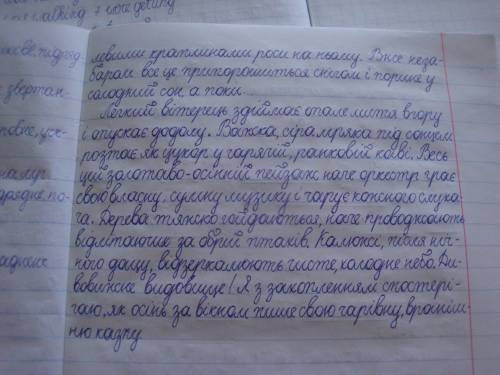 walking, I were getting
левими краплинами роси на ньому. Вже неза-
баром все це припорошиться снігом і порине у
солодкий сон, а поки...
Легкий вітерець здіймає опале листя вгору
і опускає додолу. Важка, сіра мряка під сонцем
розтає, як цукор у гарячій, ранковій каві. Весь
цей золотаво-осінній пейзаж наче оркестр грає
свою власну, сумну музику і чарує кожного слуха-
ча. Дерева тяжко гойдаються, наче проводжають
відлітаючих за обрій птахів. Калюжі, після ніч-
ного дощу, відзеркалюють чисте, холодне небо. Ди-
вовижне видовище! Я з захопленням спостері-
гаю, як осінь за вікном пише свою чарівну, врочіш-
ню казку.